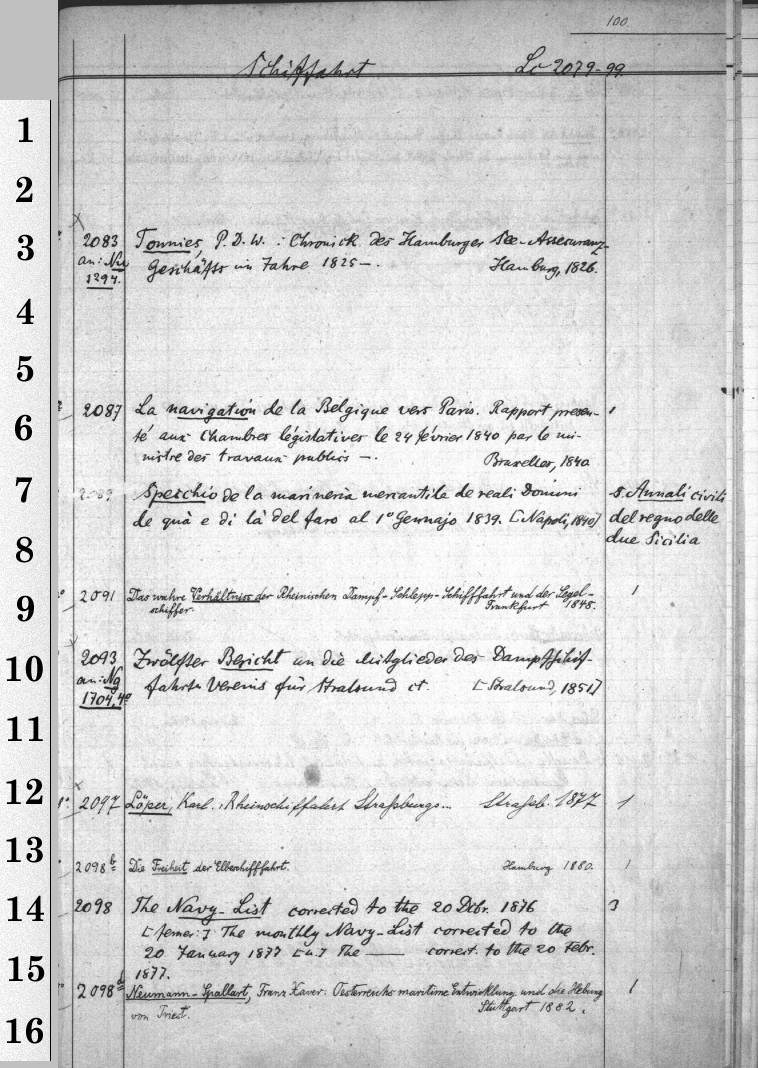 100.
Schiffahrt Lc 2079-99.
1
2
3
4
5
6
7
8
9
10
11
12
13
14
15
16
2083 Tonnies, P. D. W. : Chronick des Hamburger See-Assecuranz-
an: Geschäfts im Jahre 1825 —. Hamburg, 1826.
1294.
2087 La navigation de la Belgique vers Paris. Rapport presen- 1
té aux Chambres législatives le 24 février 1840 par le mi-
nistre des travaux publics —. Bruxelles, 1840
2089 Specchio de la marineria mercantile de reali Domini s. Annali civili
de quà e di là del faro al 1° Gennajo 1839. [Napoli, 1840] del regno delle
due Sicilia
2091 Das wahre Verhältniss der Rheinischen Dampf-Schlepp-Schifffahrt und der Segel- 1
schiffer. Frankfurt 1848.
2093 Zwölfter Bericht an die Mitglieder des Dampfschif-
an: Ng fahrts Vereins für Stralsund et. [Stralsund, 1851]
1704, 4°
2097 Löper, Karl. Rheinschiffahrt Straßburgs... Straßb. 1877 1
2098 b Die Freiheit der Elbeschifffahrt. Hamburg 1880. 1
2098 The Navy-List corrected to the 20 Dcbr. 1876 3
[ferner:] The monthly Navy-List corrected to the
20 January 1877 [u.] The —— correct. to the 20 Febr.
1877.
2098 d Neumann-Spallart, Franz Xaver: Oesterreichs maritime Entwicklung und die Hebung 1
von Triest. Stuttgart 1882.